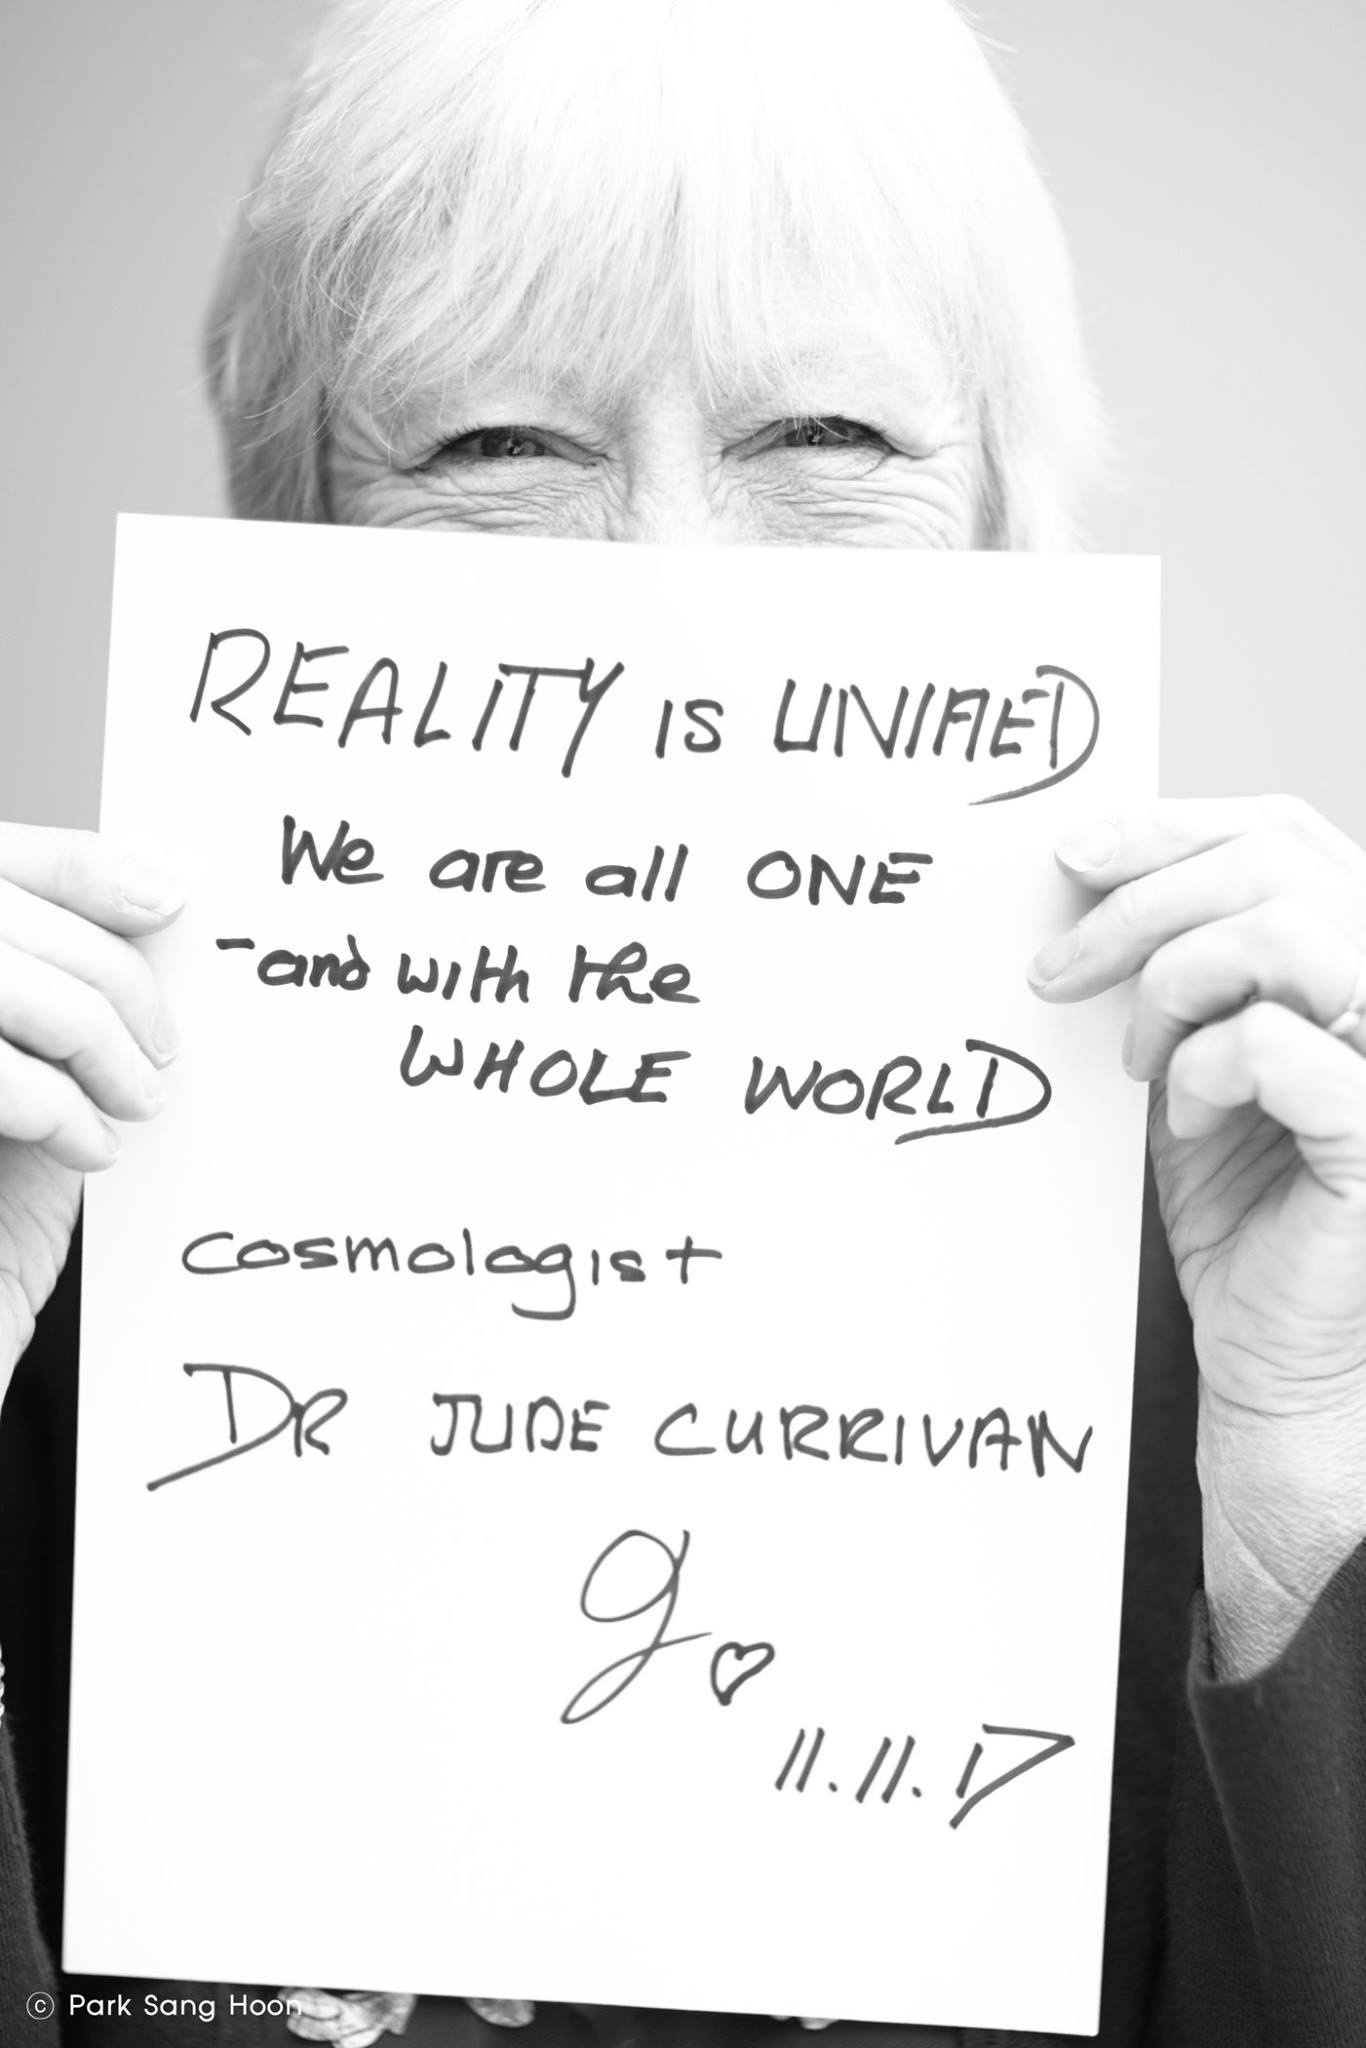 REALITY IS UNIFIED
We are all ONE
- and with the
WHOLE WORLD
Cosmologist
DR JUDE CURRIVAN
J ♡
11.11.17
© Park Sang Hoon